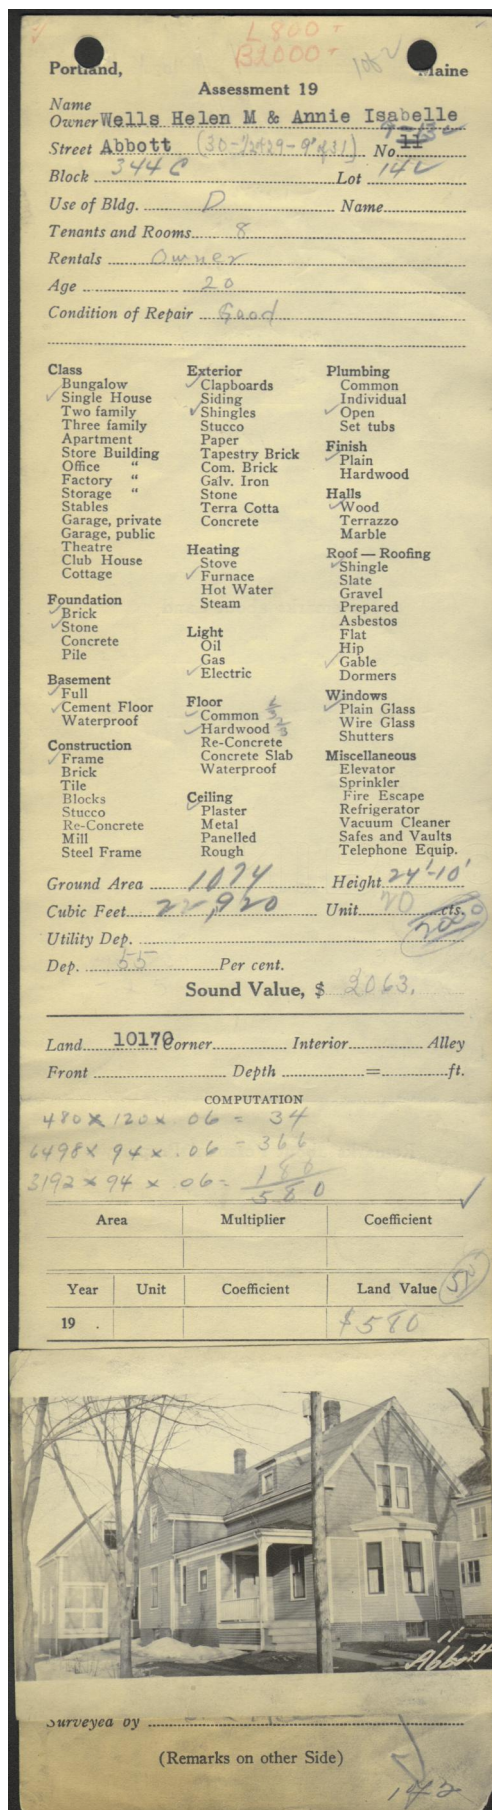 L 800 -
B2000 -
Portland, Maine
Assessment 19
Name
Owner Wells Helen M & Annie Isabelle
9-13
Street Abbott (30-1/2 of 29-9' of 31) No. 11
Block 344 C Lot 14
Use of Bldg. D Name
Tenants and Rooms 8
Rentals Owner
Age 20
Condition of Repair Good
Class
Bungalow
✓ Single House
Two family
Three family
Apartment
Store Building
Office "
Factory "
Storage "
Stables
Garage, private
Garage, public
Theatre
Club House
Cottage
Foundation
✓ Brick
✓ Stone
Concrete
Pile
Basement
✓ Full
✓ Cement Floor
Waterproof
Construction
✓ Frame
Brick
Tile
Blocks
Stucco
Re-Concrete
Mill
Steel Frame
Exterior
✓ Clapboards
Siding
✓ Shingles
Stucco
Paper
Tapestry Brick
Com. Brick
Galv. Iron
Stone
Terra Cotta
Concrete
Heating
Stove
✓ Furnace
Hot Water
Steam
Light
Oil
Gas
✓ Electric
Floor
✓ Common 1/3
✓ Hardwood 2/3
Re-Concrete
Concrete Slab
Waterproof
Ceiling
✓ Plaster
Metal
Panelled
Rough
Plumbing
Common
Individual
✓ Open
Set tubs
Finish
✓ Plain
Hardwood
Halls
✓ Wood
Terrazzo
Marble
Roof — Roofing
✓ Shingle
Slate
Gravel
Prepared
Asbestos
Flat
Hip
✓ Gable
Dormers
Windows
✓ Plain Glass
Wire Glass
Shutters
Miscellaneous
Elevator
Sprinkler
Fire Escape
Refrigerator
Vacuum Cleaner
Safes and Vaults
Telephone Equip.
Ground Area 1074 Height 24'-10'
Cubic Feet 22,920 Unit 20 cts.
2000
Utility Dep.
Dep. 55 Per cent.
Sound Value, $ 2063.
Land 10170 Corner Interior Alley
Front Depth = ft.
COMPUTATION
480 x 120 x .06 = 34
6498 x 94 x .06 = 366
3192 x 94 x .06 = 180
580
Area Multiplier Coefficient
Year Unit Coefficient Land Value
19 . $580
11
Abbott
Surveyed by
(Remarks on other Side)
142